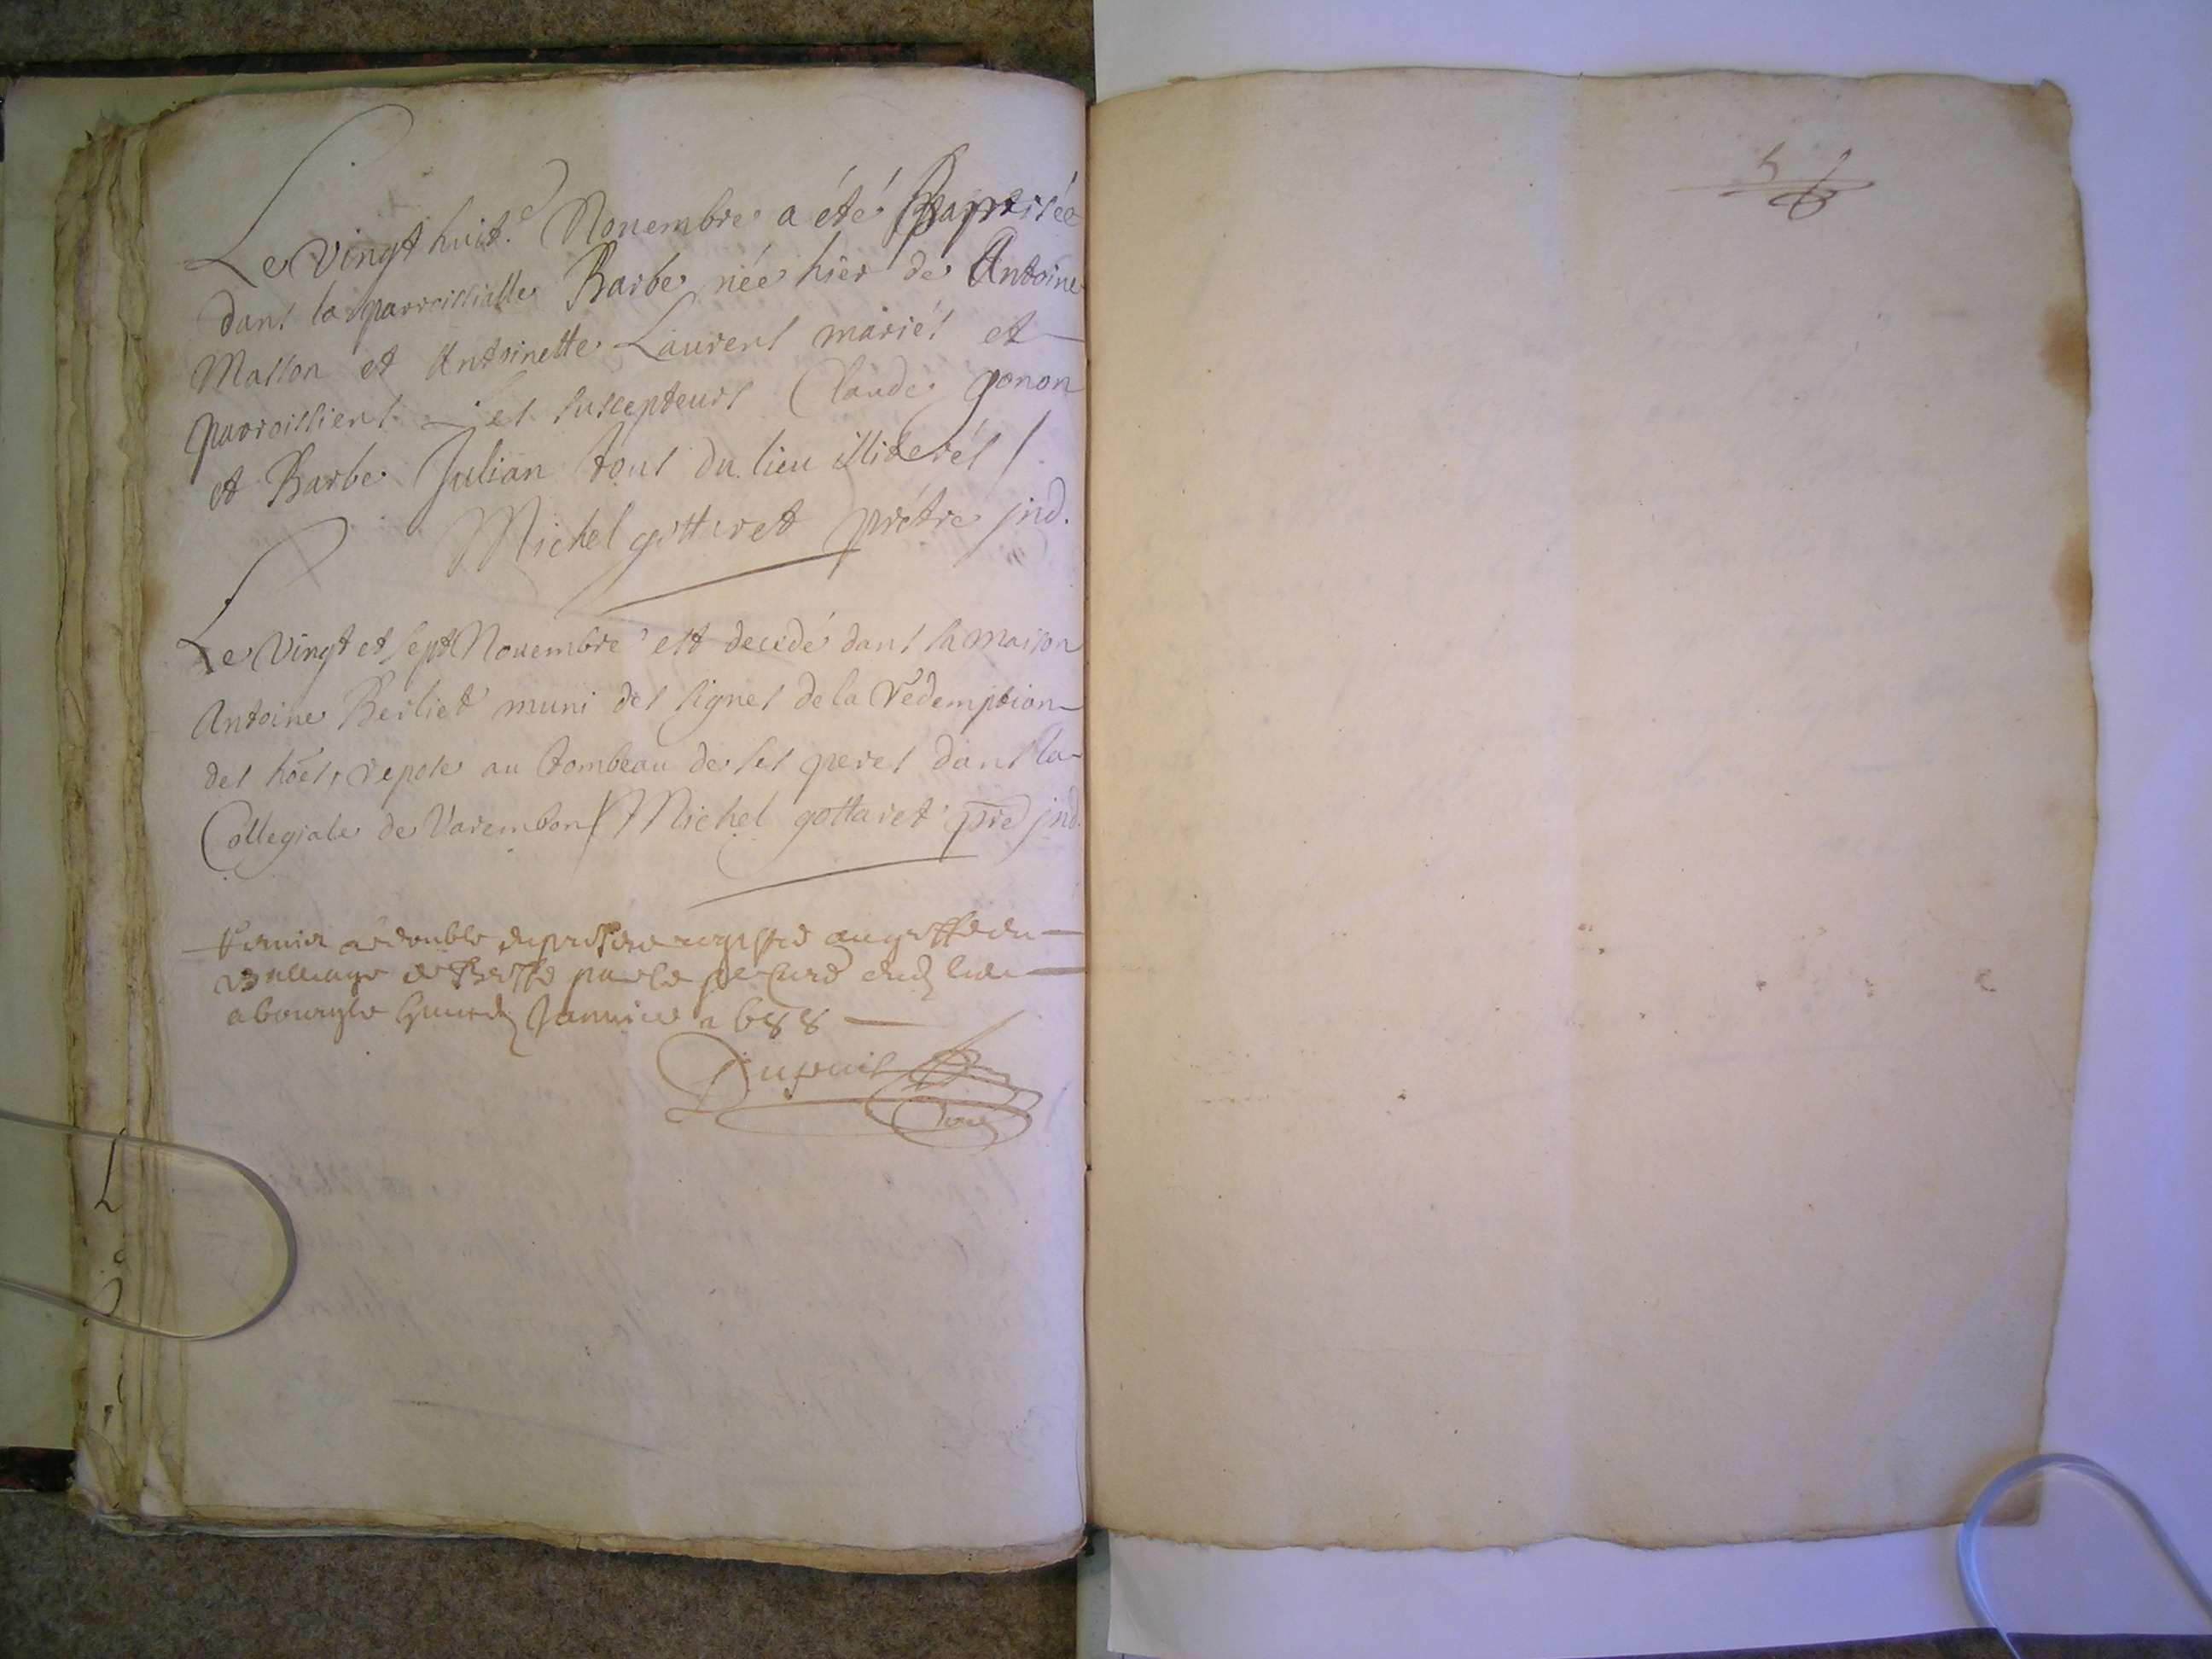 Le Vingt huit.e Nouembre a été Baptisée
dans la parroissialle Barbe née hier de Antoine
Masson et Antoinette Laurens mariés et
parroissiens ses suscepteurs Claude gonon
et Barbe Julian tous du lieu illiterés /
Michel gottaret prêtre ind.
Le Vingt et sept Nouembre est decedé dans sa maison
Antoine Berliet muni des signes de la rédemption
des hoes, repose au tombeau de ses peres dans la
Collegiale de Varembon / Michel gottaret pre ind.
le double du present registre au greffe du
Balliage de Bresse par le Sr Curé dud lieu
a bourg le Janvier 1688